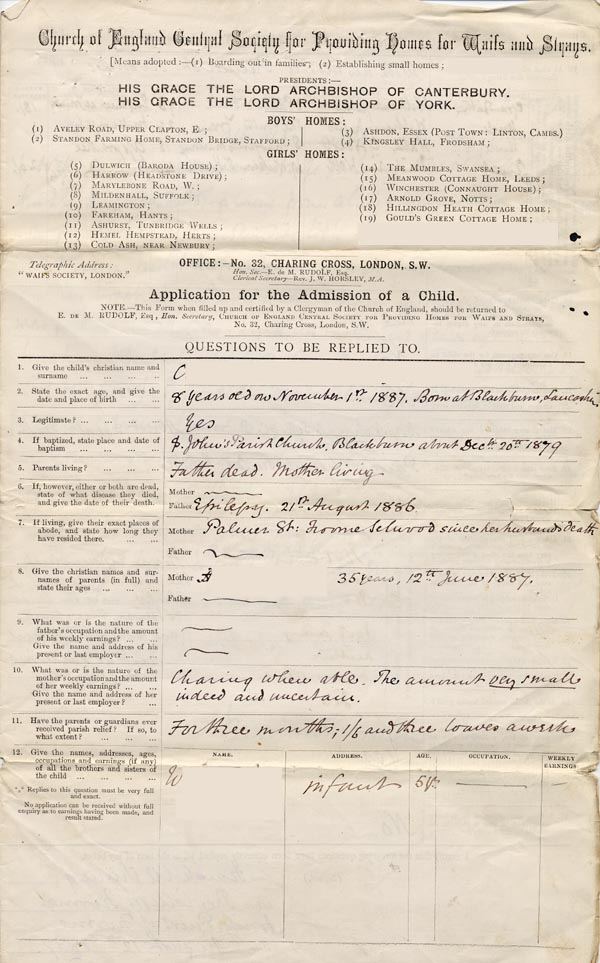 Church of England Central Society for Providing Homes for Waifs and Strays.
[Means adopted :—(1) Boarding out in families; (2) Establishing small homes;
PRESIDENTS:—
HIS GRACE THE LORD ARCHBISHOP OF CANTERBURY.
HIS GRACE THE LORD ARCHBISHOP OF YORK.
BOYS' HOMES:
(1) AVELEY ROAD, UPPER CLAPTON, E.;
(2) STANDON FARMING HOME, STANDON BRIDGE, STAFFORD;
(3) ASHDON, ESSEX (POST TOWN: LINTON, CAMBS.)
(4) KINGSLEY HALL, FRODSHAM;
GIRLS' HOMES:
(5) DULWICH (BARODA HOUSE);
(6) HARROW (HEADSTONE DRIVE);
(7) MARYLEBONE ROAD, W.;
(8) MILDENHALL, SUFFOLK;
(9) LEAMINGTON;
(10) FAREHAM, HANTS;
(11) ASHURST, TUNBRIDGE WELLS;
(12) HEMEL HEMPSTEAD, HERTS;
(13) COLD ASH, NEAR NEWBURY;
(14) THE MUMBLES, SWANSEA;
(15) MEANWOOD COTTAGE HOME, LEEDS;
(16) WINCHESTER (CONNAUGHT HOUSE);
(17) ARNOLD GROVE, NOTTS;
(18) HILLINGDON HEATH COTTAGE HOME;
(19) GOULD'S GREEN COTTAGE HOME;
Telegraphic Address:
"WAIFS SOCIETY, LONDON."
OFFICE:—No. 32, CHARING CROSS, LONDON, S.W.
Hon. Sec.—E. de M. RUDOLF, Esq.
Clerical Secretary—Rev. J. W. HORSLEY, M.A.
Application for the Admission of a Child.
NOTE.—This Form when filled up and certified by a Clergyman of the Church of England, should be returned to
E. DE M. RUDOLF, Esq., Hon. Secretary, CHURCH OF ENGLAND CENTRAL SOCIETY FOR PROVIDING HOMES FOR WAIFS AND STRAYS,
No. 32, Charing Cross, London, S.W.
QUESTIONS TO BE REPLIED TO.
1. Give the child's christian name and
surname ... ... ... ...
C
2. State the exact age, and give the
date and place of birth ... ...
8 years old on November 1st 1887. Born at Blackburn, Lancashire
3. Legitimate? ... ... ... ...
Yes
4. If baptized, state place and date of
baptism ... ... ... ...
S. John's Parish Church, Blackburn about Decth 20th 1879
5. Parents living? ... ... ...
Father dead. Mother living
6. If, however, either or both are dead,
state of what disease they died,
and give the date of their death.
Mother
Father Epilepsy. 21st August 1886
7. If living, give their exact places of
abode, and state how long they
have resided there. ... ...
Mother Palmer St: Froome Selwood since her husband's death
Father
8. Give the christian names and sur-
names of parents (in full) and
state their ages ... ... ...
Mother 35 years, 12th June 1887.
Father
9. What was or is the nature of the
father's occupation and the amount
of his weekly earnings? ... ...
Give the name and address of his
present or last employer ... ...
10. What was or is the nature of the
mother's occupation and the amount
of her weekly earnings? ... ...
Give name and address of her
present or last employer? ... ...
Charing when able. The amount very small
indeed and uncertain.
11. Have the parents or guardians ever
received parish relief? If so, to
what extent? ... ... ...
For three months; 1/6 and three loaves a week
12. Give the names, addresses, ages,
occupations and earnings (if any)
of all the brothers and sisters of
the child ... ... ... ...
*** Replies to this question must be very full
and exact.
No application can be received without full
enquiry as to earnings having been made, and
result stated.
NAME. ADDRESS. AGE. OCCUPATION. WEEKLY EARNINGS
W infant